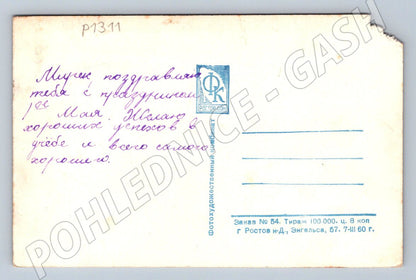 P1311
Мирек поздравляю
тебя с праздником
1ое Мая. Желаю
хороших успехов в
учебе и всего самого
хорошего.
ФК
Фотохудожественный комбинат
Заказ № 54. Тираж 100 000. ц. 8 коп
г Ростов н-Д., Энгельса, 57. 7-III 60 г.
POHLEDNICE - GASH